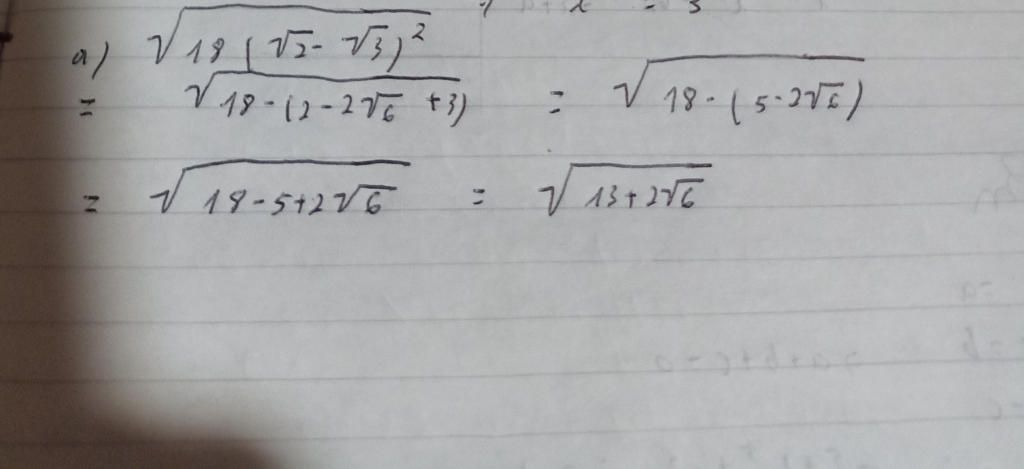 a) √(18(√2-√3)²)
= √(18-(2-2√6+3)) = √(18-(5-2√6))
= √(18-5+2√6) = √(13+2√6)